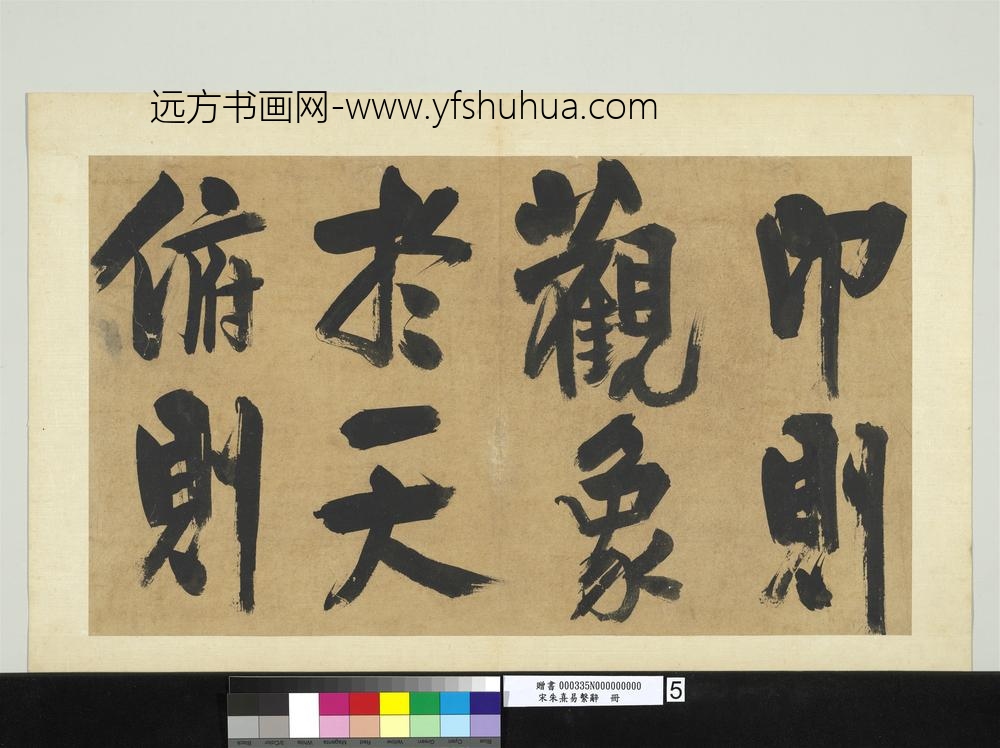 远方书画网-www.yfshuhua.com
卬則
觀象
於天
俯則
贈書 000335N000000000
宋朱熹易繫辭 冊
5
Black
3/Color
White
Magenta
Red
Yellow
Green
Cyan
Blue